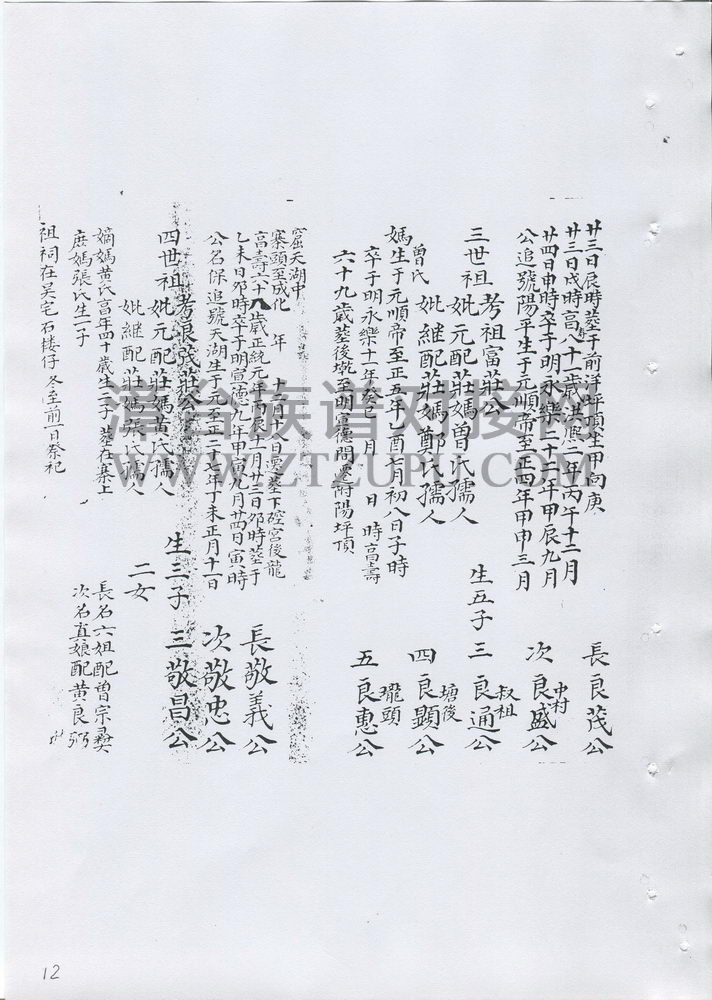 公追號陽平生于元順帝至正四年甲申三月
廿四日申時卒于明永樂二十二年甲辰九月
廿三日戌時高八十一歲洪應二年丙午十二月
廿三日辰時葬于前洋坪頂坐甲向庚
三世祖考祖富莊公
妣元配莊媽曾氏孺人
妣繼配莊媽鄭氏孺人
生五子
長良茂公
次良盛公 中村
三良通公 叔祖
四良顯公 塘後
五良惠公 瓏頭
曾氏
媽生于元順帝至正五年乙酉七月初八日子時
卒于明永樂十一年癸巳 月 日 時高壽
六十九歲葬後墘至明宣德間遷附陽坪頂
四世祖考良茂莊公
妣元配莊媽黃氏孺人
妣繼配莊媽張氏孺人
生三子
長敬義公
次敬忠公
三敬昌公
二女
長名六姐配曾宗彞
次名真娘配黃良弼
公名保追號天湖生于元至正二十七年丁未正月十一日
乙未日卯時卒于明宣德九年甲寅九月廿四日寅時
高壽六十八歲正統元年丙辰十一月廿三日卯時葬于
寨頭至成化 年 十二月十八日遷葬下硿宮後龍
窟天湖中
嫡媽黃氏高年四十歲生二子葬在寨上
庶媽張氏生一子
祖祠在吳宅石楼仔冬至前一日祭祀
漳台族谱对接网
WWW.ZTZUPU.COM
12